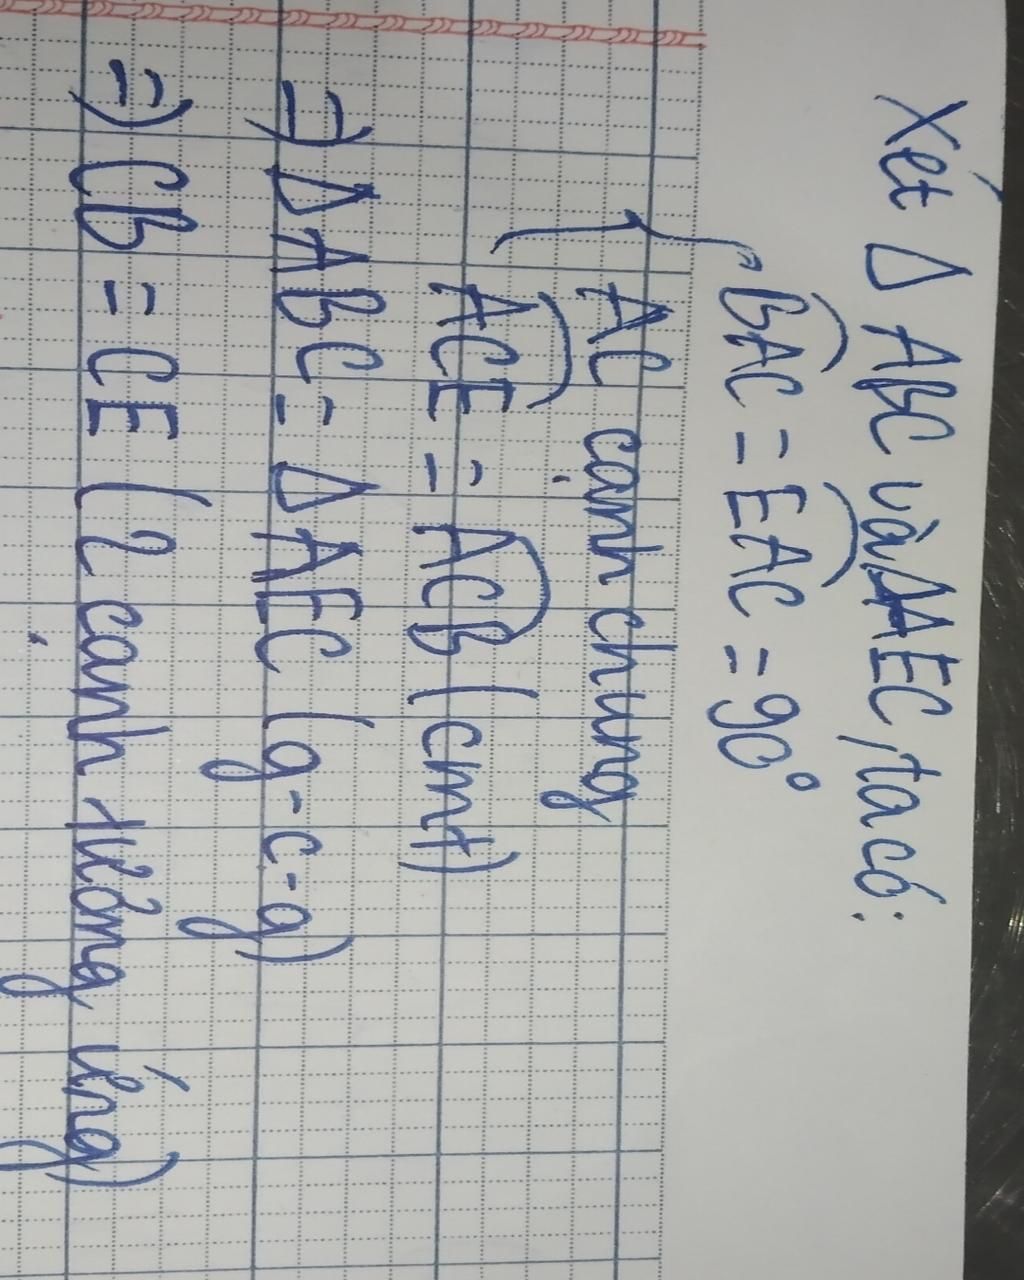 Xét Δ ABC và Δ AEC, ta có:
BAC = EAC = 90°
AC cạnh chung
ACE = ACB (cmt)
=> Δ ABC = Δ AEC (g-c-g)
=> CB = CE (2 cạnh tương ứng)